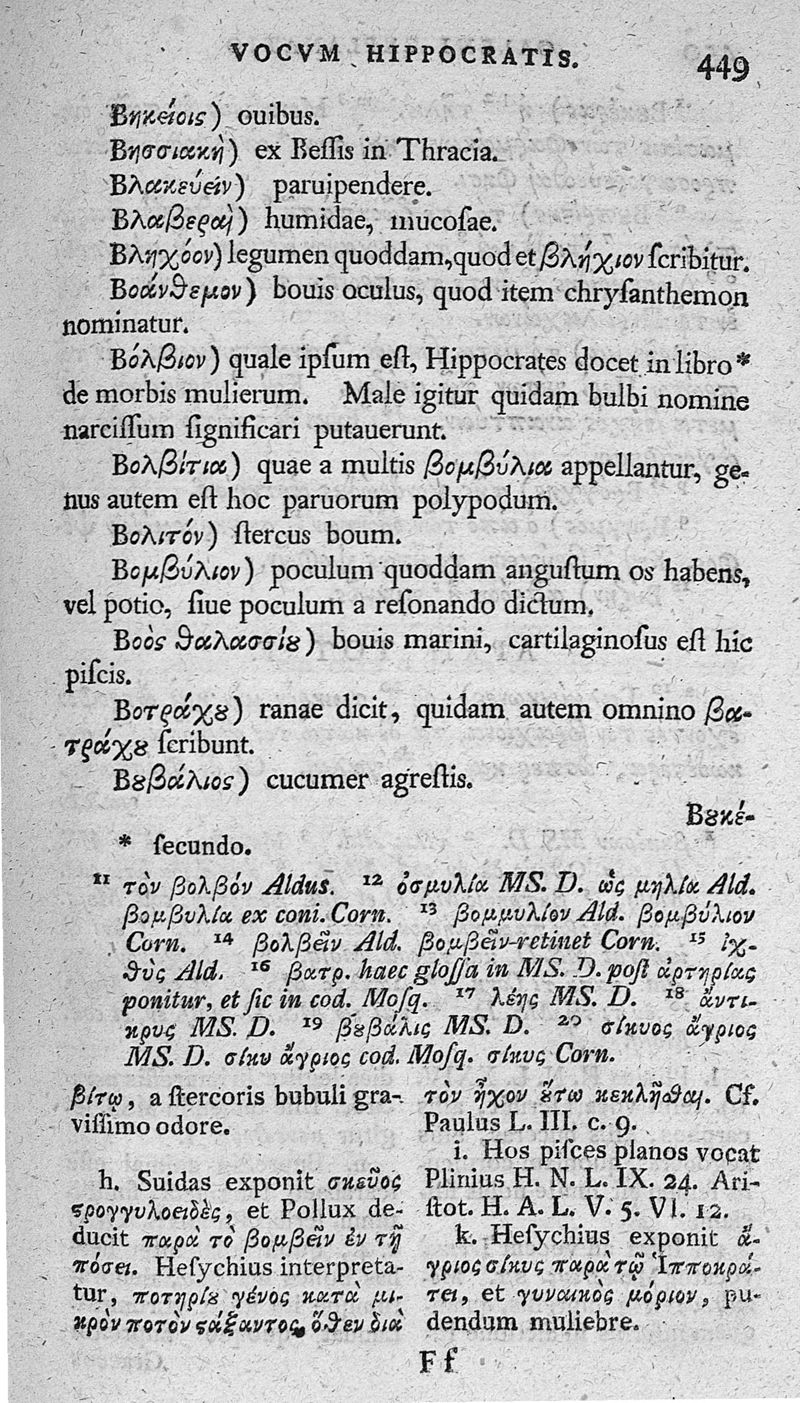 VOCVM HIPPOCRATIS.
449
Βηκείοις) ouibus.
Βησσιακὴ) ex Beſſis in Thracia.
Βλακεύειν) paruipendere.
Βλαβεραὶ) humidae, mucoſae.
Βληχόον) legumen quoddam, quod et βλήχιον ſcribitur.
Βοάνθεμον) bouis oculus, quod item chryſanthemon
nominatur.
Βόλβιον) quale ipſum eſt, Hippocrates docet in libro *
de morbis mulierum. Male igitur quidam bulbi nomine
narciſſum ſignificari putauerunt.
Βολβίτια) quae a multis βομβύλια appellantur, ge-
nus autem eſt hoc paruorum polypodum.
Βολιτόν) ſtercus boum.
Βομβύλιον) poculum quoddam anguſtum os habens,
vel potio, ſiue poculum a reſonando dictum.
Βοὸς θαλασσίȣ) bouis marini, cartilaginoſus eſt hic
piſcis.
Βοτράχȣ) ranae dicit, quidam autem omnino βα-
τράχȣ ſcribunt.
Βȣβάλιος) cucumer agreſtis.
Βȣκέ-
* ſecundo.
11 τὸν βολβόν Aldus. 12 ὀσμυλία MS. D. ὡς μηλία Ald.
βομβυλία ex coni. Corn. 13 βομμυλίον Ald. βομβύλιον
Corn. 14 βολβεῖν Ald. βομβεῖν retinet Corn. 15 ἰχ-
θὺς Ald. 16 βατρ. haec gloſſa in MS. D. poſt ἀρτηρίας
ponitur, et ſic in cod. Moſq. 17 λέης MS. D. 18 ἄντι-
κρυς MS. D. 19 βȣβάλις MS. D. 20 σίκυος ἄγριος
MS. D. σίκυ ἄγριος cod. Moſq. σίκυς Corn.
βίτῳ, a ſtercoris bubuli gra-
viſſimo odore.
h. Suidas exponit σκεῦος
ϛρογγυλοειδὲς, et Pollux de-
ducit παρὰ τὸ βομβεῖν ἐν τῇ
πόσει. Heſychius interpreta-
tur, ποτηρίȣ γένος κατὰ μι-
κρὸν ποτὸν ϛάξαντος, ὅθεν διὰ
τὸν ἦχον ȣ̔́τω κεκλῆσθαι. Cf.
Paulus L. III. c. 9.
i. Hos piſces planos vocat
Plinius H. N. L. IX. 24. Ari-
ſtot. H. A. L. V. 5. VI. 12.
k. Heſychius exponit ἄ-
γριος σίκυς παρὰ τῷ Ἱπποκρά-
τει, et γυναικὸς μόριον, pu-
dendum muliebre.
F f